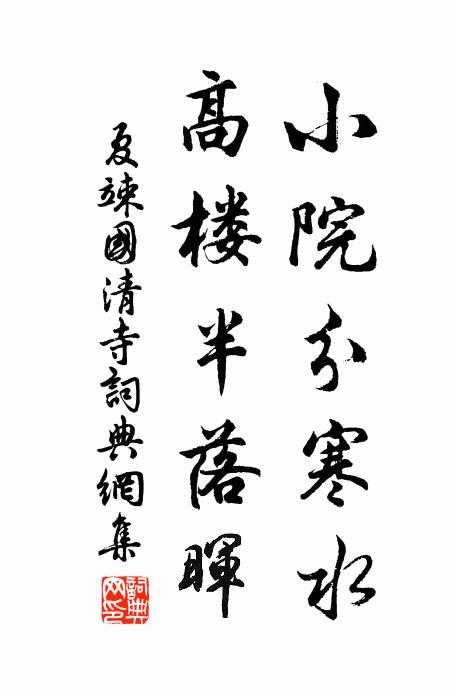 小院分寒水
高楼半落暉
夏竦國清寺詞典網集
詞典網印